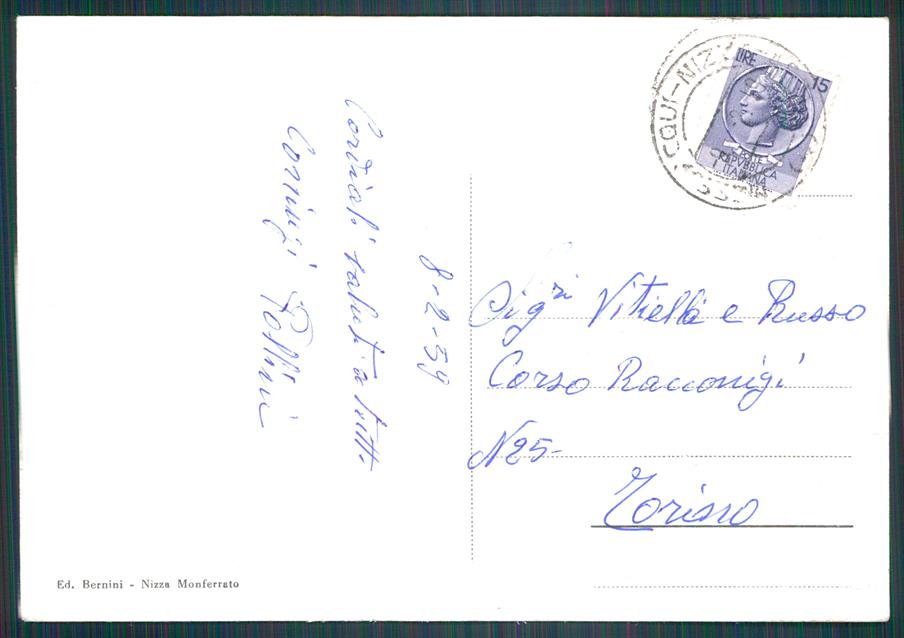 8-2-59
Cordiali saluti a tutti
Coniugi
Sig.ri Vitiella e Russo
Corso Racconigi
N25-
Torino
LIRE 15
POSTE
REPVBBLICA
ITALIANA
CQUI-NIZ
Ed. Bernini - Nizza Monferrato